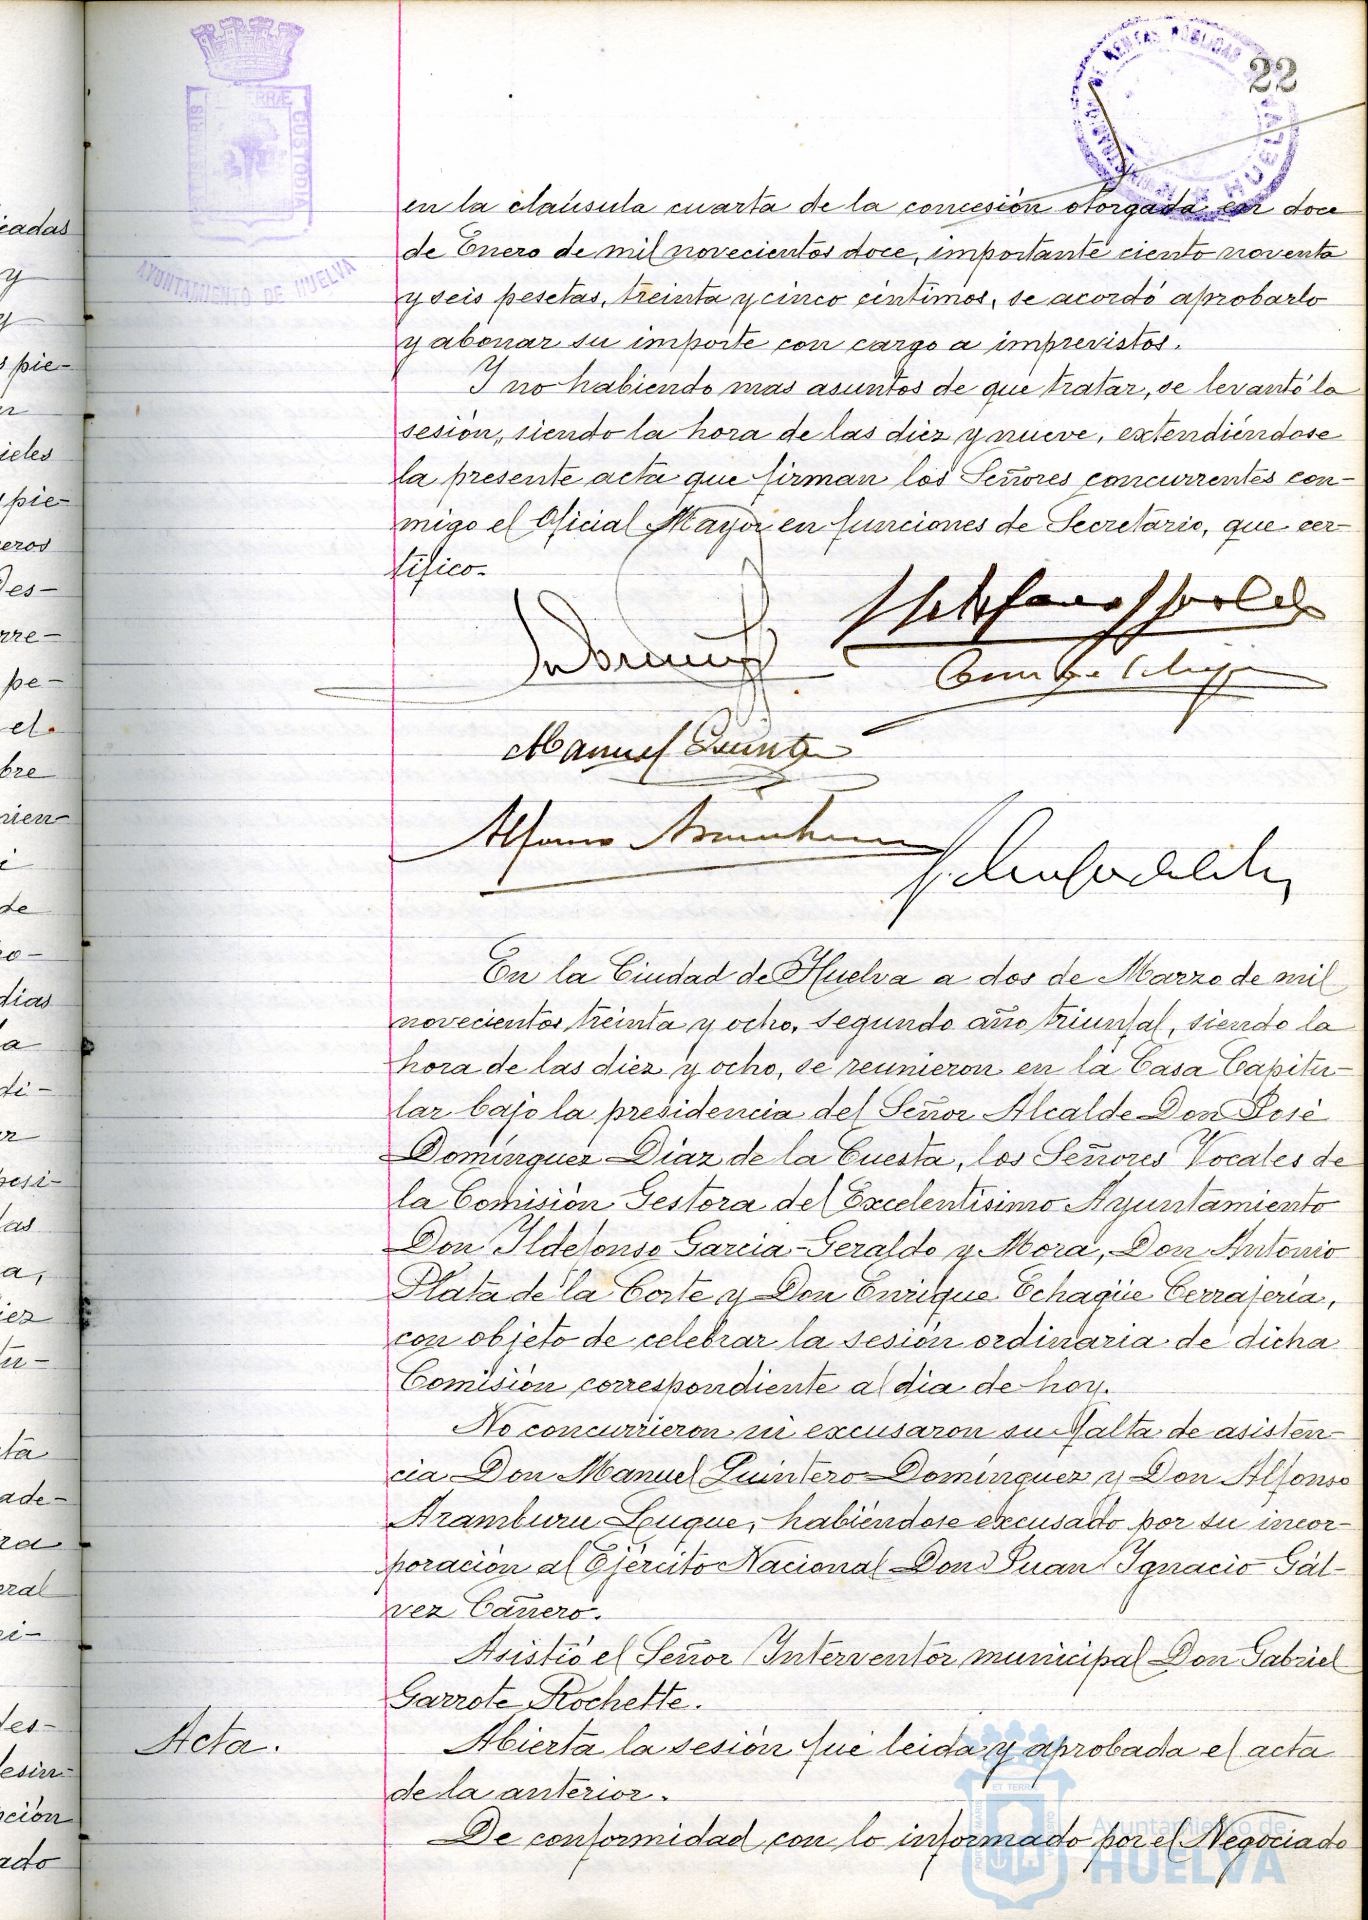 22
PORTUS MARIS ET TERRÆ CUSTODIA
AYUNTAMIENTO DE HUELVA
ADMINISTRACIÓN DE RENTAS PÚBLICAS
HUELVA
en la claúsula cuarta de la concesión otorgada en doce
de Enero de mil novecientos doce, importante ciento noventa
y seis pesetas, treinta y cinco céntimos, se acordó aprobarlo
y abonar su importe con cargo a imprevistos.
Y no habiendo mas asuntos de que tratar, se levantó la
sesión, siendo la hora de las diez y nueve, extendiéndose
la presente acta que firman los Señores concurrentes con-
migo el Oficial Mayor en funciones de Secretario, que cer-
tifico.
Manuel Quintero
Alfonso Aramburu
En la Ciudad de Huelva a dos de Marzo de mil
novecientos treinta y ocho, segundo año triunfal, siendo la
hora de las diez y ocho, se reunieron en la Casa Capitu-
lar bajo la presidencia del Señor Alcalde Don José
Domínguez Díaz de la Cuesta, los Señores Vocales de
la Comisión Gestora del Excelentísimo Ayuntamiento
Don Ildefonso García-Geraldo y Mora, Don Antonio
Plata de la Corte y Don Enrique Echagüe Cerrajería,
con objeto de celebrar la sesión ordinaria de dicha
Comisión correspondiente al día de hoy.
No concurrieron ni excusaron su falta de asisten-
cia Don Manuel Quintero Domínguez y Don Alfonso
Aramburu Luque, habiéndose excusado por su incor-
poración al Ejército Nacional Don Juan Ignacio Gál-
vez Cañero.
Asistió el Señor Interventor municipal Don Gabriel
Garrote Rochette.
Acta.
Abierta la sesión fué leida y aprobada el acta
de la anterior.
De conformidad con lo informado por el Negociado
Ayuntamiento de
HUELVA